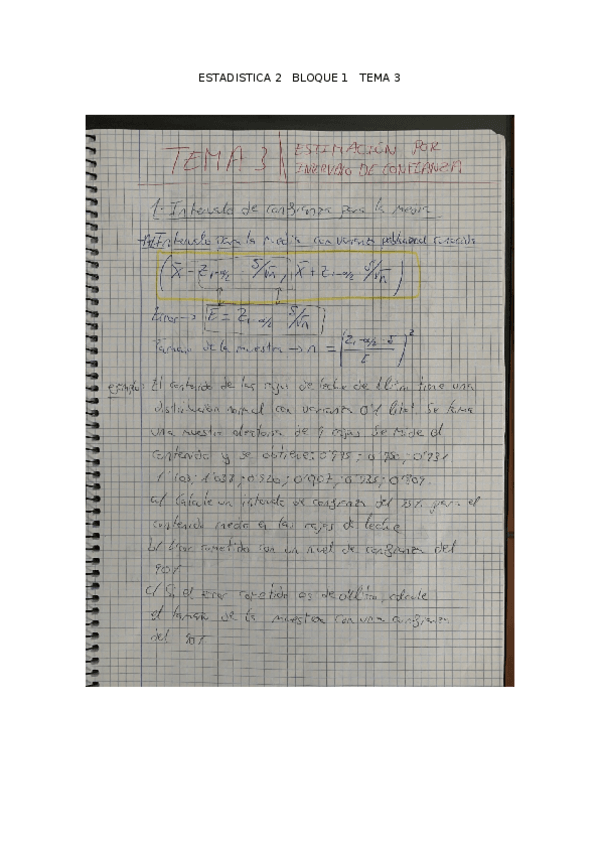 ESTADISTICA 2 BLOQUE 1 TEMA 3
TEMA 3 ESTIMACIÓN POR
INTERVALO DE CONFIANZA
1.- Intervalo de confianza para la media
Intervalo para la media con varianza poblacional conocida
(X̄ - Z1-α/2 · S/√n, X̄ + Z1-α/2 S/√n)
Error → E = Z1-α/2 S/√n
Tamaño de la muestra → n = (Z1-α/2 · S / E)²
ejemplo: El contenido de las cajas de leche de 1 litro tiene una
distribución normal con varianza 0'1 litros². Se toma
una muestra aleatoria de 9 cajas. Se mide el
contenido y se obtiene:
a/ Calcule un intervalo de confianza del para el
contenido medio en las cajas de leche
b/ Error cometido con un nivel de confianza del
90%
c/ Si el error cometido es de calcule
el tamaño de la muestra con una confianza
del 90%